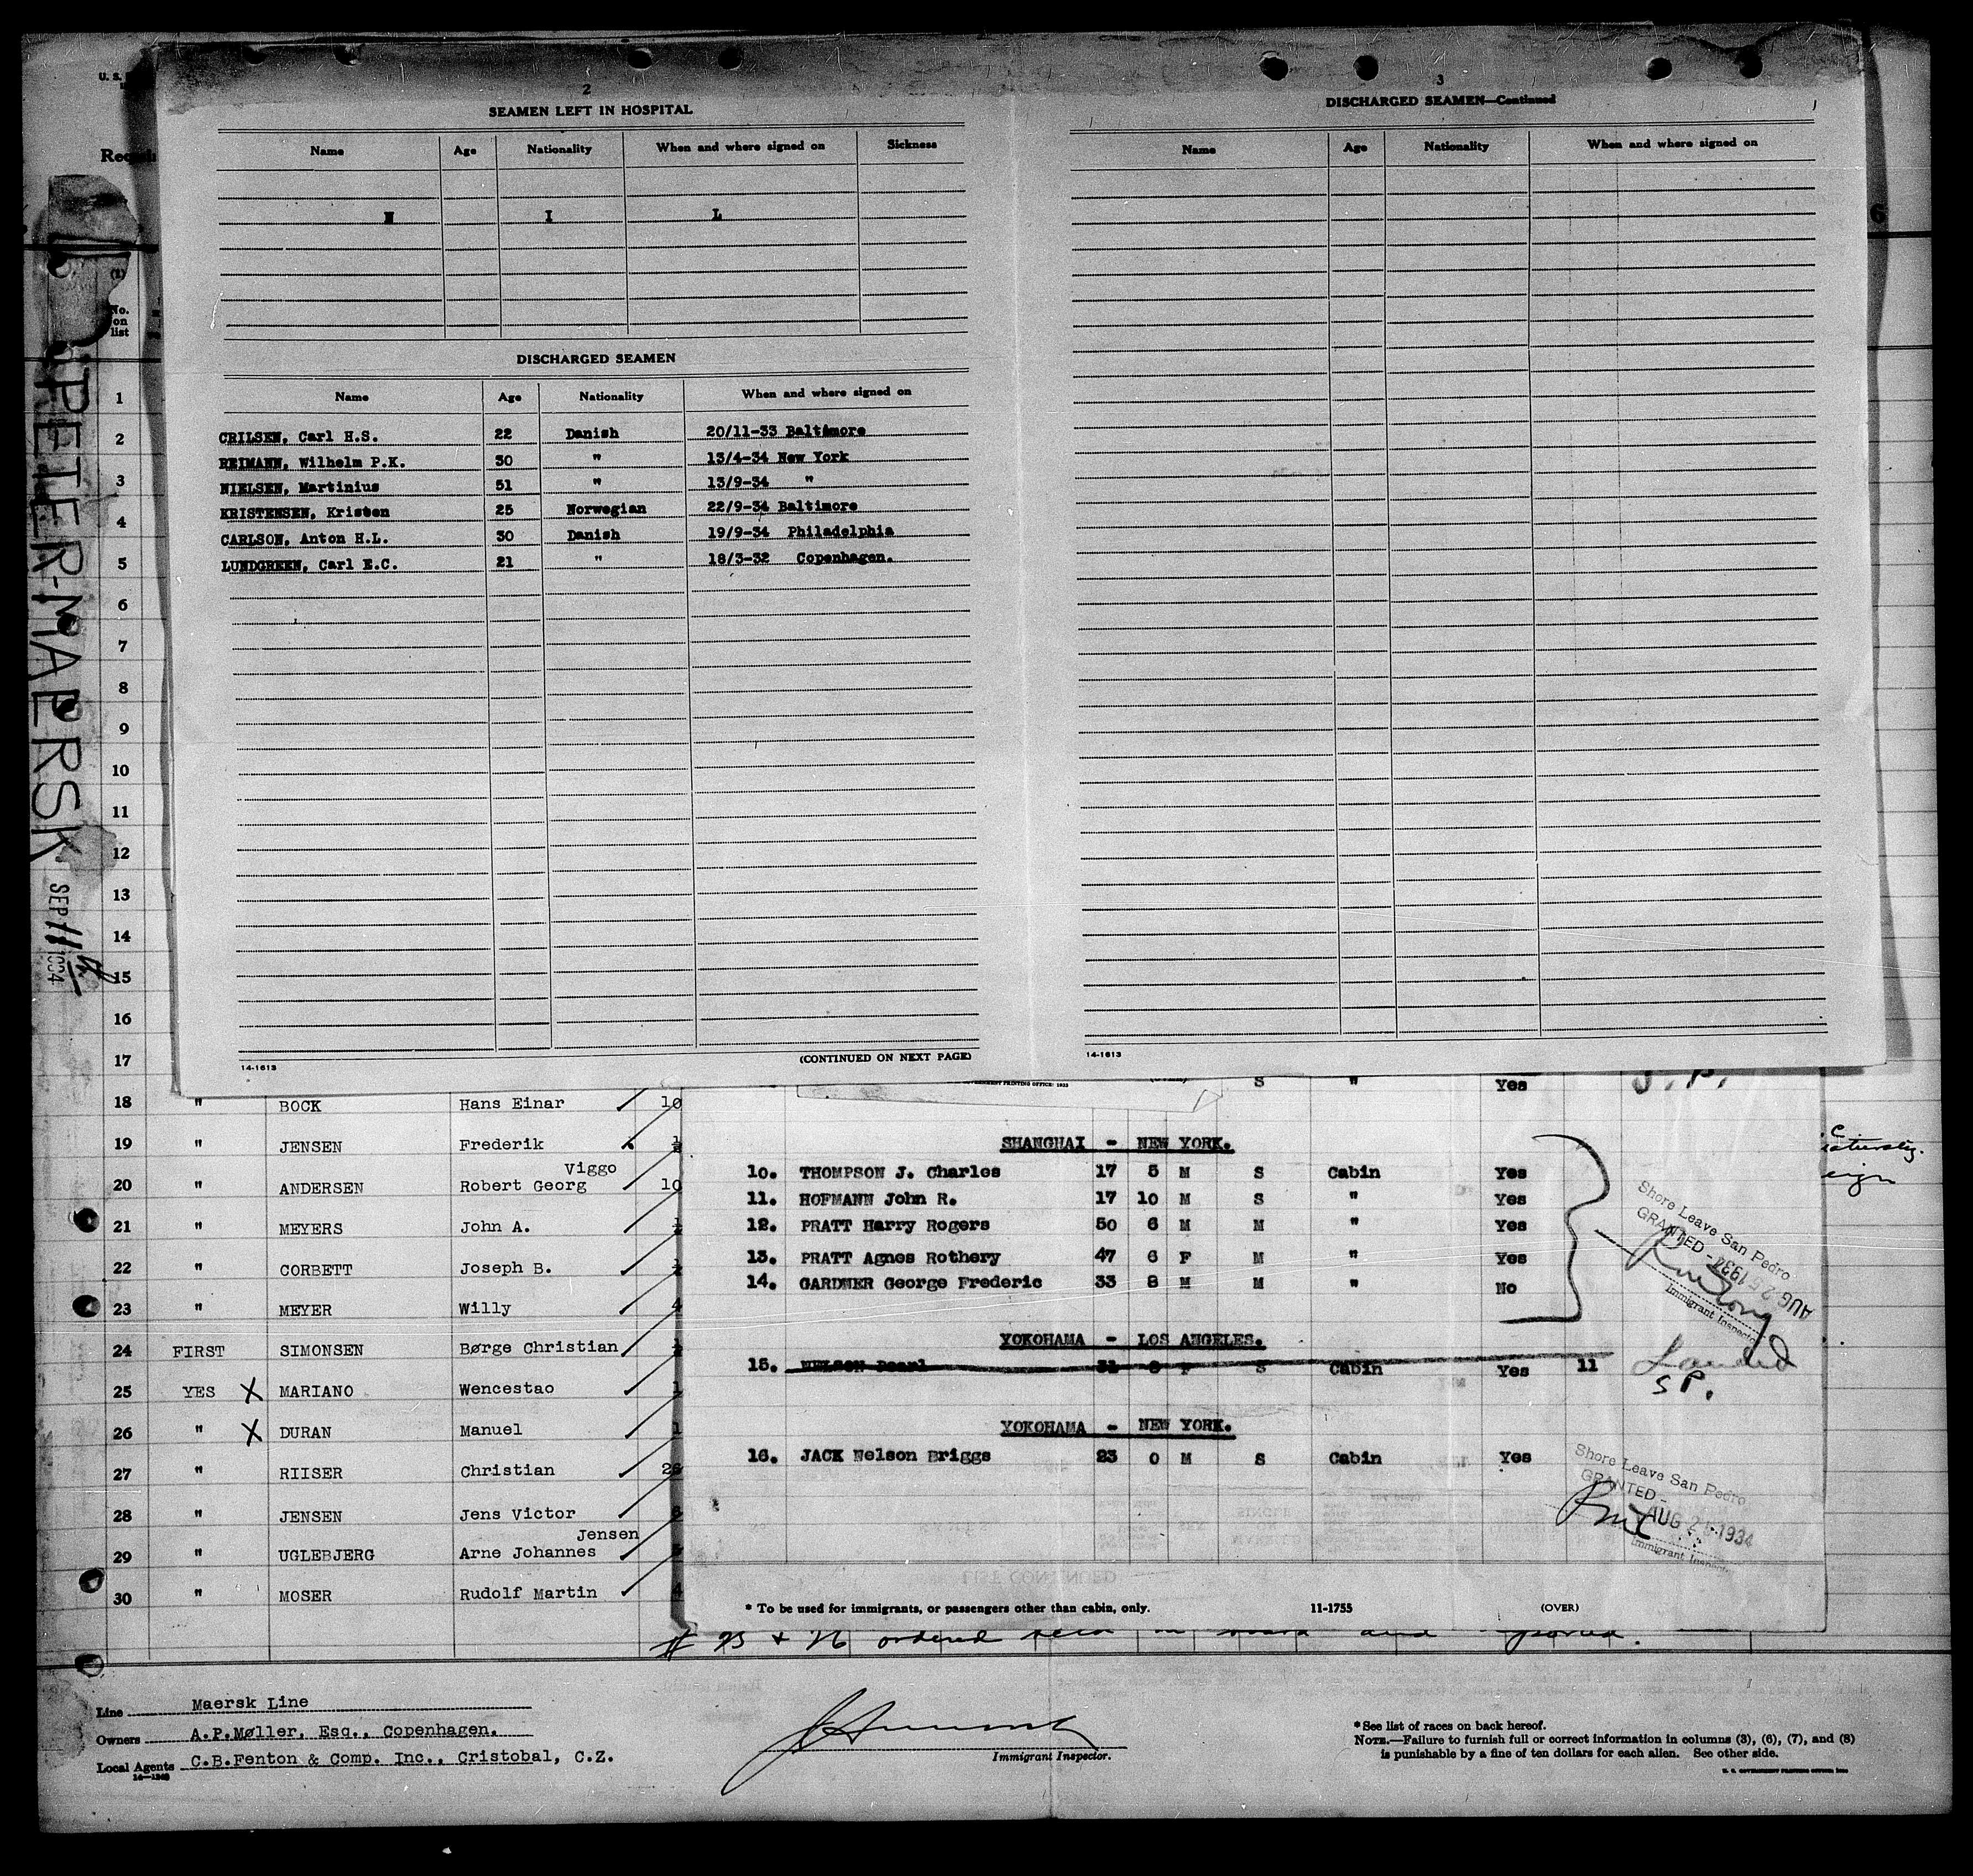 U. S.
2
SEAMEN LEFT IN HOSPITAL
Name Age Nationality When and where signed on Sickness
N I L
DISCHARGED SEAMEN
Name Age Nationality When and where signed on
CRILSEN, Carl H.S. 22 Danish 20/11-33 Baltimore
REIMANN, Wilhelm P.K. 30 " 13/4-34 New York
NIELSEN, Martinius 51 " 13/9-34 "
KRISTENSEN, Kristen 25 Norwegian 22/9-34 Baltimore
CARLSON, Anton H.L. 30 Danish 19/9-34 Philadelphia
LUNDGREEN, Carl E.C. 21 " 18/3-32 Copenhagen.
(CONTINUED ON NEXT PAGE)
14-1613
3
DISCHARGED SEAMEN—Continued
Name Age Nationality When and where signed on
14-1613
6
(1)
No.
on
list
PETER-MAERSK
SEP 11th 1934
1
2
3
4
5
6
7
8
9
10
11
12
13
14
15
16
17
18 " BOCK Hans Einar 10
19 " JENSEN Frederik
Viggo
20 " ANDERSEN Robert Georg 10
21 " MEYERS John A.
22 " CORBETT Joseph B.
23 " MEYER Willy 4
24 FIRST SIMONSEN Børge Christian
25 YES X MARIANO Wencestao 1
26 " X DURAN Manuel 1
27 " RIISER Christian
28 " JENSEN Jens Victor 6
Jensen
29 " UGLEBJERG Arne Johannes
30 " MOSER Rudolf Martin 4
S " Yes
SHANGHAI - NEW YORK.
10. THOMPSON J. Charles 17 5 M S Cabin Yes
11. HOFMANN John R. 17 10 M S " Yes
12. PRATT Harry Rogers 50 6 M M " Yes
13. PRATT Agnes Rothery 47 6 F M " Yes
14. GARDNER George Frederic 33 8 M M " No
Shore Leave San Pedro
GRANTED -
AUG 2 1934
Immigrant Inspector
YOKOHAMA - LOS ANGELES.
15. NELSON Pearl 31 0 F S Cabin Yes 11 Landed
S.P.
YOKOHAMA - NEW YORK.
16. JACK Nelson Briggs 23 0 M S Cabin Yes
Shore Leave San Pedro
GRANTED -
AUG 2 1934
Immigrant Inspector
LIST CONTINUED
* To be used for immigrants, or passengers other than cabin, only. 11-1755 (OVER)
# 25 + 26 ordered
Line Maersk Line
Owners A.P.Møller, Esq., Copenhagen.
Local Agents C.B.Fenton & Comp. Inc., Cristobal, C.Z.
Immigrant Inspector.
*See list of races on back hereof.
NOTE.—Failure to furnish full or correct information in columns (3), (6), (7), and (8)
is punishable by a fine of ten dollars for each alien. See other side.